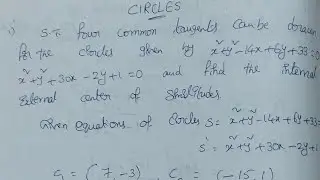 CIRCLES
1) S.T four common tangents can be drawn
for the circles given by x²+y²-14x+6y+33=0
x²+y²+30x-2y+1=0 and find the internal
External center of Similitudes
Given equations of Circles S= x²+y²-14x+6y+33=
S'= x²+y²+30x-2y+1
C₁ = (7,-3) C₂ = (-15,1